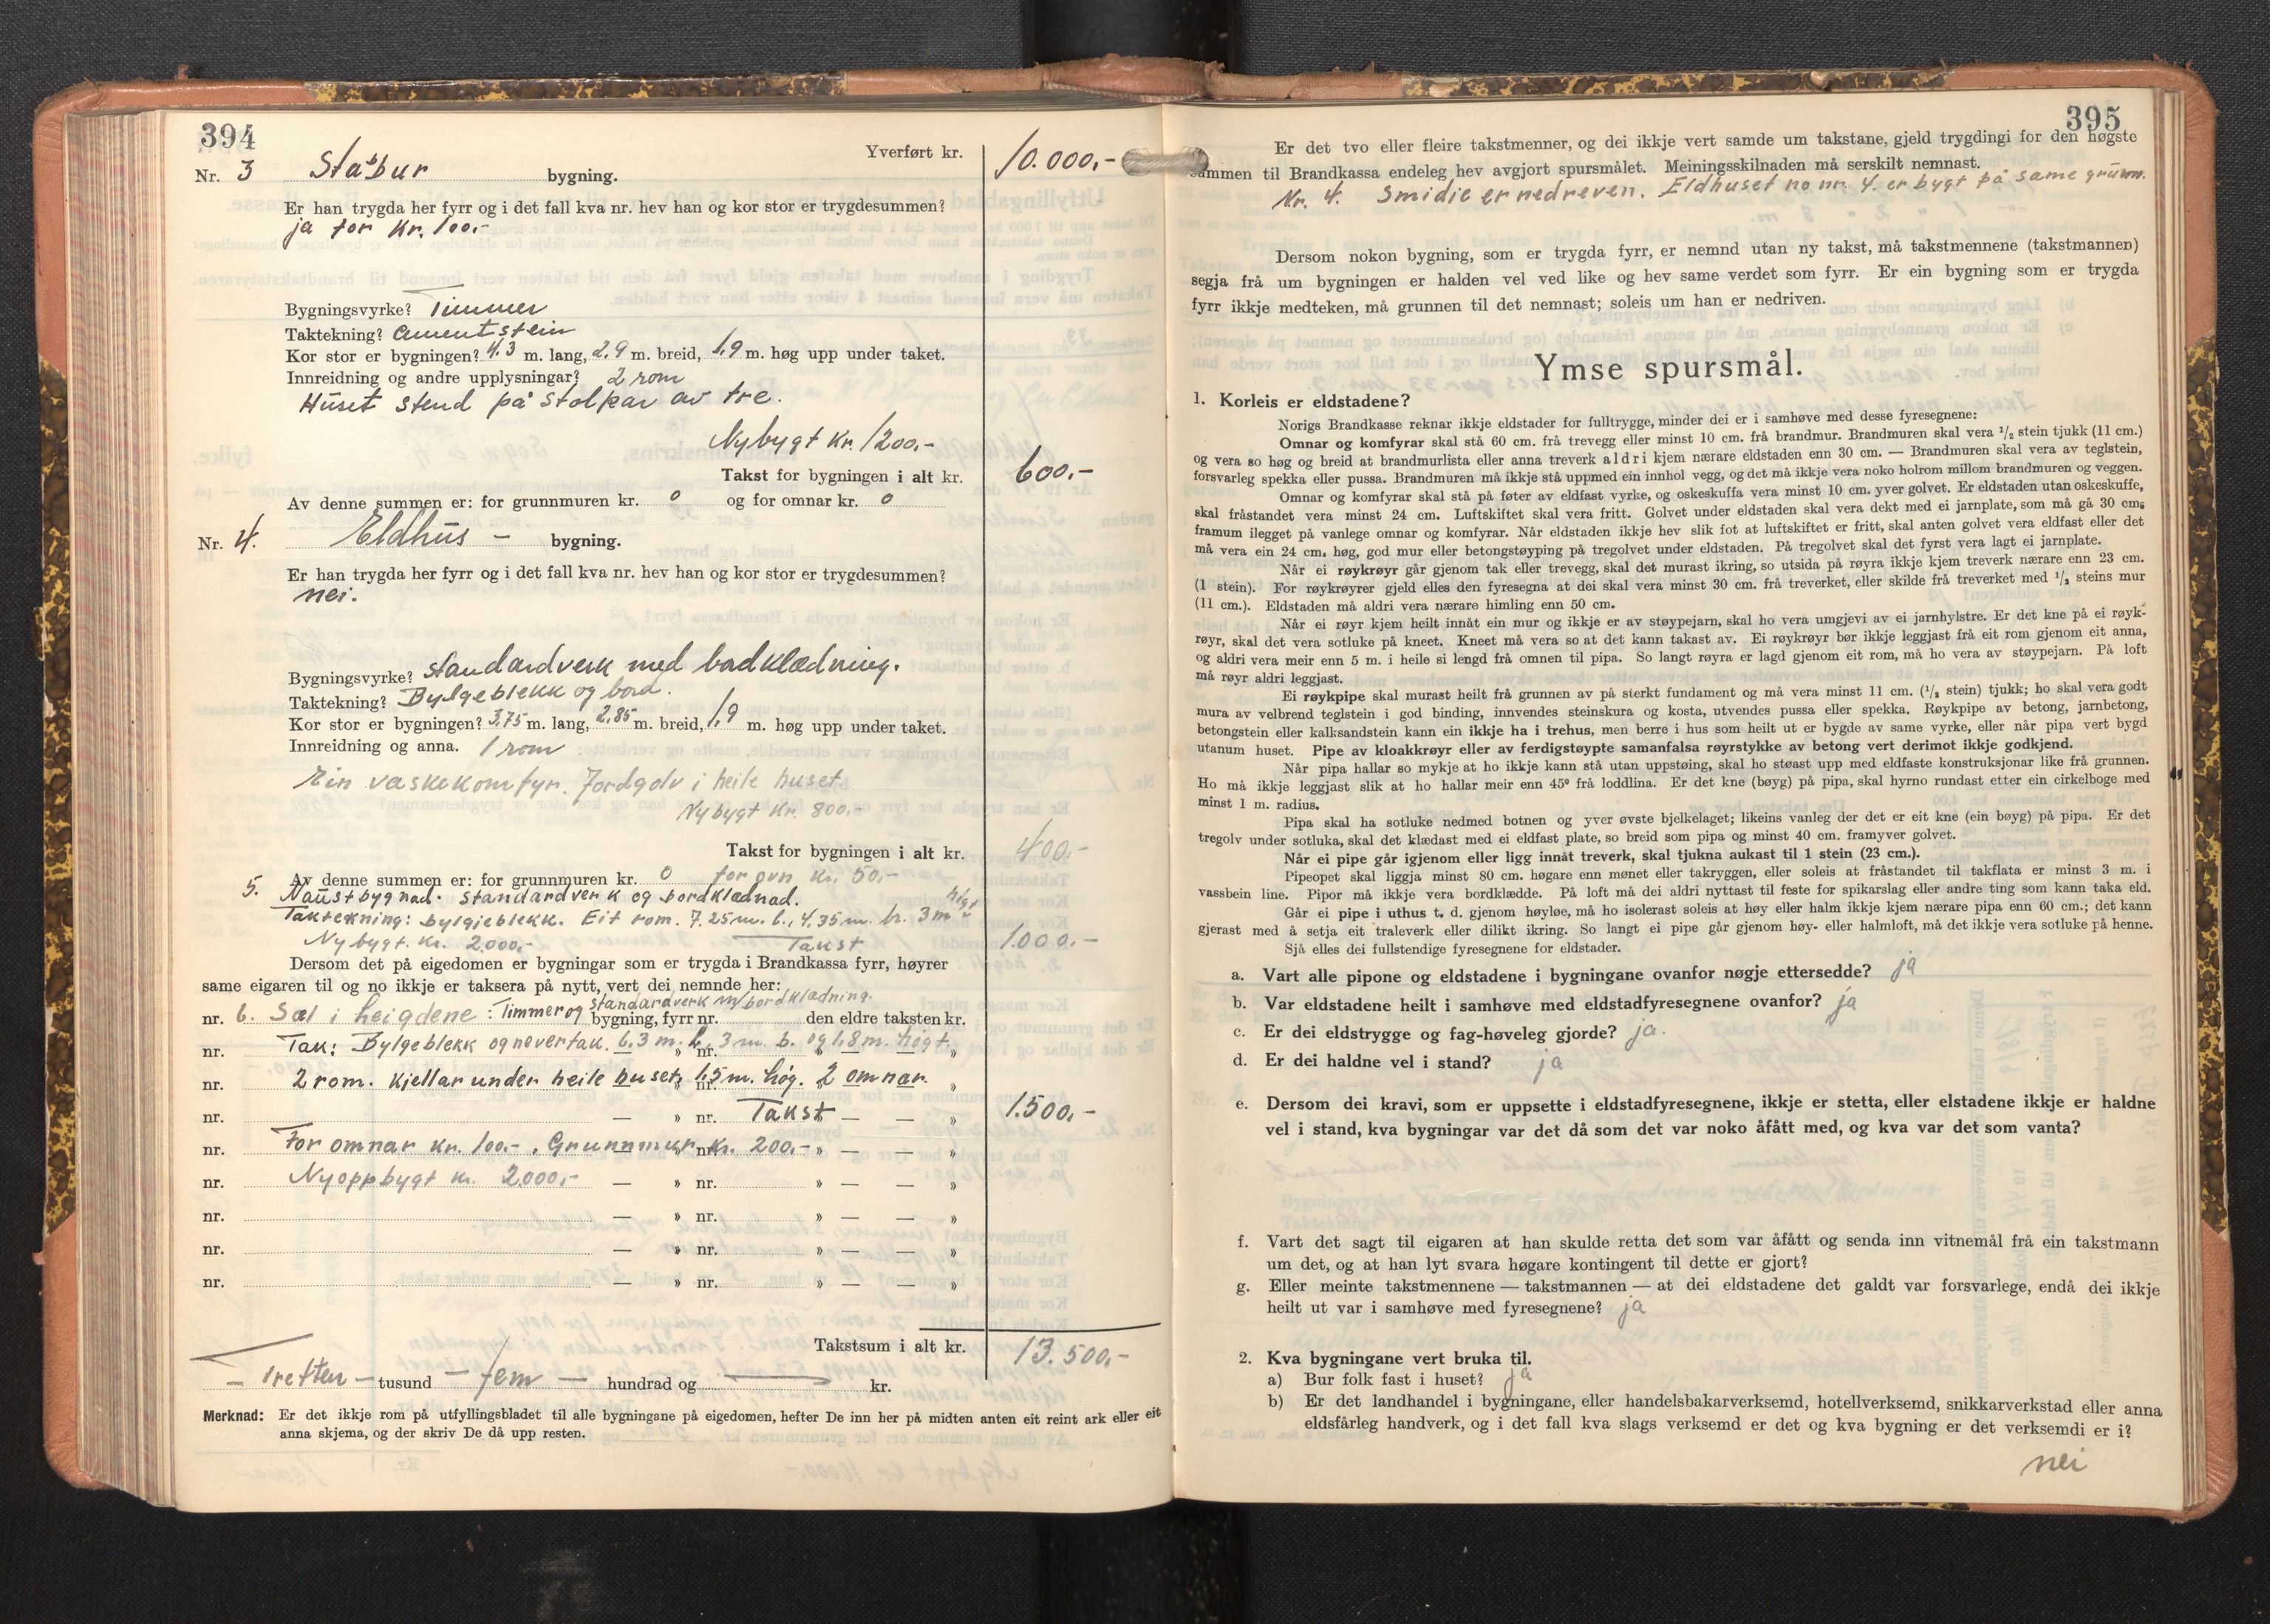 394
Yverført kr. 10.000,-
Nr. 3 Stabbur bygning.
Er han trygda her fyrr og i det fall kva nr. hev han og kor stor er trygdesummen?
ja for Kr. 100.-
Bygningsvyrke? Timmer
Taktekning? Cementstein
Kor stor er bygningen? 4.3 m. lang, 2,9 m. breid, 1,9 m. høg upp under taket.
Innreidning og andre upplysningar? 2 rom
Huset stend på stolpar av tre.
Nybygt Kr. 1200,-
Takst for bygningen i alt kr. 600.-
Av denne summen er: for grunnmuren kr. 0 og for omnar kr. 0
Nr. 4. Eldhus - bygning.
Er han trygda her fyrr og i det fall kva nr. hev han og kor stor er trygdesummen?
nei.
Bygningsvyrke? standardverk med bordklædning.
Taktekning? Bylgeblekk og bord.
Kor stor er bygningen? 3,75 m. lang, 2,85 m. breid, 1,9 m. høg upp under taket.
Innreidning og anna. 1 rom
Ein vaskekomfyr. Jordgolv i heile huset.
Nybygt Kr. 800.-
Takst for bygningen i alt kr. 400.-
Av denne summen er: for grunnmuren kr. 0 for ovn kr. 50,-
5. Naustbygnad. standardverk og bordklædnad.
Taktekning: bylgjeblekk. Eit rom. 7.25 m. l., 4,35 m. br. 3 m høgt
Nybygt. kr. 2.000.- Takst 1.000,-
Dersom det på eigedomen er bygningar som er trygda i Brandkassa fyrr, høyrer
same eigaren til og no ikkje er taksera på nytt, vert dei nemnde her:
nr. 6. Sæl i heigdene: Timmer og standardverk m/bordklædning. bygning, fyrr nr. den eldre taksten kr.
nr. Tak: Bylgeblekk og nevertak. 6,3 m. l., 3 m. b. og 1,8 m. høgt. — » nr. » — — »
nr. 2 rom. kjellar under heile huset, 1,5 m. høg. 2 omnar. — » nr. » — — »
nr. — » nr. Takst — — » 1.500,-
nr. For omnar kr. 100.-. Grunnmur kr. 200.- — » nr. » — — »
nr. Nyoppbygt kr. 2.000,- — » nr. » — — »
nr. — » nr. » — — »
nr. — » nr. » — — »
nr. — » nr. » — — »
Takstsum i alt kr. 13.500,-
— Tretten — tusund — fem — hundrad og — kr.
Merknad: Er det ikkje rom på utfyllingsbladet til alle bygningane på eigedomen, hefter De inn her på midten anten eit reint ark eller eit
anna skjema, og der skriv De då upp resten.
395
Er det tvo eller fleire takstmenner, og dei ikkje vert samde um takstane, gjeld trygdingi for den høgste
summen til Brandkassa endeleg hev avgjort spursmålet. Meiningsskilnaden må serskilt nemnast.
Nr. 4. Smidie er nedreven. Eldhuset no nr. 4. er bygt på same grunn.
Dersom nokon bygning, som er trygda fyrr, er nemnd utan ny takst, må takstmennene (takstmannen)
segja frå um bygningen er halden vel ved like og hev same verdet som fyrr. Er ein bygning som er trygda
fyrr ikkje medteken, må grunnen til det nemnast; soleis um han er nedriven.
Ymse spursmål.
1. Korleis er eldstadene?
Norigs Brandkasse reknar ikkje eldstader for fulltrygge, minder dei er i samhøve med desse fyresegnene:
Omnar og komfyrar skal stå 60 cm. frå trevegg eller minst 10 cm. frå brandmur. Brandmuren skal vera ¹/₂ stein tjukk (11 cm.)
og vera so høg og breid at brandmurlista eller anna treverk aldri kjem nærare eldstaden enn 30 cm. — Brandmuren skal vera av teglstein,
forsvarleg spekka eller pussa. Brandmuren må ikkje stå uppmed ein innhol vegg, og det må ikkje vera noko holrom millom brandmuren og veggen.
Omnar og komfyrar skal stå på føter av eldfast vyrke, og oskeskuffa vera minst 10 cm. yver golvet. Er eldstaden utan oskeskuffe,
skal fråstandet vera minst 24 cm. Luftskiftet skal vera fritt. Golvet under eldstaden skal vera dekt med ei jarnplate, som må gå 30 cm.
framum ilegget på vanlege omnar og komfyrar. Når eldstaden ikkje hev slik fot at luftskiftet er fritt, skal anten golvet vera eldfast eller det
må vera ein 24 cm. høg, god mur eller betongstøyping på tregolvet under eldstaden. På tregolvet skal det fyrst vera lagt ei jarnplate.
Når ei røykrøyr går gjenom tak eller trevegg, skal det murast ikring, so utsida på røyra ikkje kjem treverk nærare enn 23 cm.
(1 stein). For røykrøyrer gjeld elles den fyresegna at dei skal vera minst 30 cm. frå treverket, eller skilde frå treverket med ¹/₂ steins mur
(11 cm.). Eldstaden må aldri vera nærare himling enn 50 cm.
Når ei røyr kjem heilt innåt ein mur og ikkje er av støypejarn, skal ho vera umgjevi av ei jarnhylstre. Er det kne på ei røyk-
røyr, skal det vera sotluke på kneet. Kneet må vera so at det kann takast av. Ei røykrøyr bør ikkje leggjast frå eit rom gjenom eit anna,
og aldri vera meir enn 5 m. i heile si lengd frå omnen til pipa. So langt røyra er lagd gjenom eit rom, må ho vera av støypejarn. På loft
må røyr aldri leggjast.
Ei røykpipe skal murast heilt frå grunnen av på sterkt fundament og må vera minst 11 cm. (¹/₂ stein) tjukk; ho skal vera godt
mura av velbrend teglstein i god binding, innvendes steinskura og kosta, utvendes pussa eller spekka. Røykpipe av betong, jarnbetong,
betongstein eller kalksandstein kann ein ikkje ha i trehus, men berre i hus som heilt ut er bygde av same vyrke, eller når pipa vert bygd
utanum huset. Pipe av kloakkrøyr eller av ferdigstøypte samanfalsa røyrstykke av betong vert derimot ikkje godkjend.
Når pipa hallar so mykje at ho ikkje kann stå utan uppstøing, skal ho støast upp med eldfaste konstruksjonar like frå grunnen.
Ho må ikkje leggjast slik at ho hallar meir enn 45° frå loddlina. Er det kne (bøyg) på pipa, skal hyrno rundast etter ein cirkelboge med
minst 1 m. radius.
Pipa skal ha sotluke nedmed botnen og yver øvste bjelkelaget; likeins vanleg der det er eit kne (ein bøyg) på pipa. Er det
tregolv under sotluka, skal det klædast med ei eldfast plate, so breid som pipa og minst 40 cm. framyver golvet.
Når ei pipe går igjenom eller ligg innåt treverk, skal tjukna aukast til 1 stein (23 cm.).
Pipeopet skal liggja minst 80 cm. høgare enn mønet eller takryggen, eller soleis at fråstandet til takflata er minst 3 m. i
vassbein line. Pipor må ikkje vera bordklædde. På loft må dei aldri nyttast til feste for spikarslag eller andre ting som kann taka eld.
Går ei pipe i uthus t. d. gjenom høyløe, må ho isolerast soleis at høy eller halm ikkje kjem nærare pipa enn 60 cm.; det kann
gjerast med å setja eit traleverk eller dilikt ikring. So langt ei pipe går gjenom høy- eller halmloft, må det ikkje vera sotluke på henne.
Sjå elles dei fullstendige fyresegnene for eldstader.
a. Vart alle pipone og eldstadene i bygningane ovanfor nøgje ettersedde? ja
b. Var eldstadene heilt i samhøve med eldstadfyresegnene ovanfor? ja
c. Er dei eldstrygge og fag-høveleg gjorde? ja.
d. Er dei haldne vel i stand? ja
e. Dersom dei kravi, som er uppsette i eldstadfyresegnene, ikkje er stetta, eller elstadene ikkje er haldne
vel i stand, kva bygningar var det då som det var noko åfått med, og kva var det som vanta?
f. Vart det sagt til eigaren at han skulde retta det som var åfått og senda inn vitnemål frå ein takstmann
um det, og at han lyt svara høgare kontingent til dette er gjort?
g. Eller meinte takstmennene — takstmannen — at dei eldstadene det galdt var forsvarlege, endå dei ikkje
heilt ut var i samhøve med fyresegnene? ja
2. Kva bygningane vert bruka til.
a) Bur folk fast i huset? ja
b) Er det landhandel i bygningane, eller handelsbakarverksemd, hotellverksemd, snikkarverkstad eller anna
eldsfårleg handverk, og i det fall kva slags verksemd er det og kva bygning er det verksemdi er i?
nei